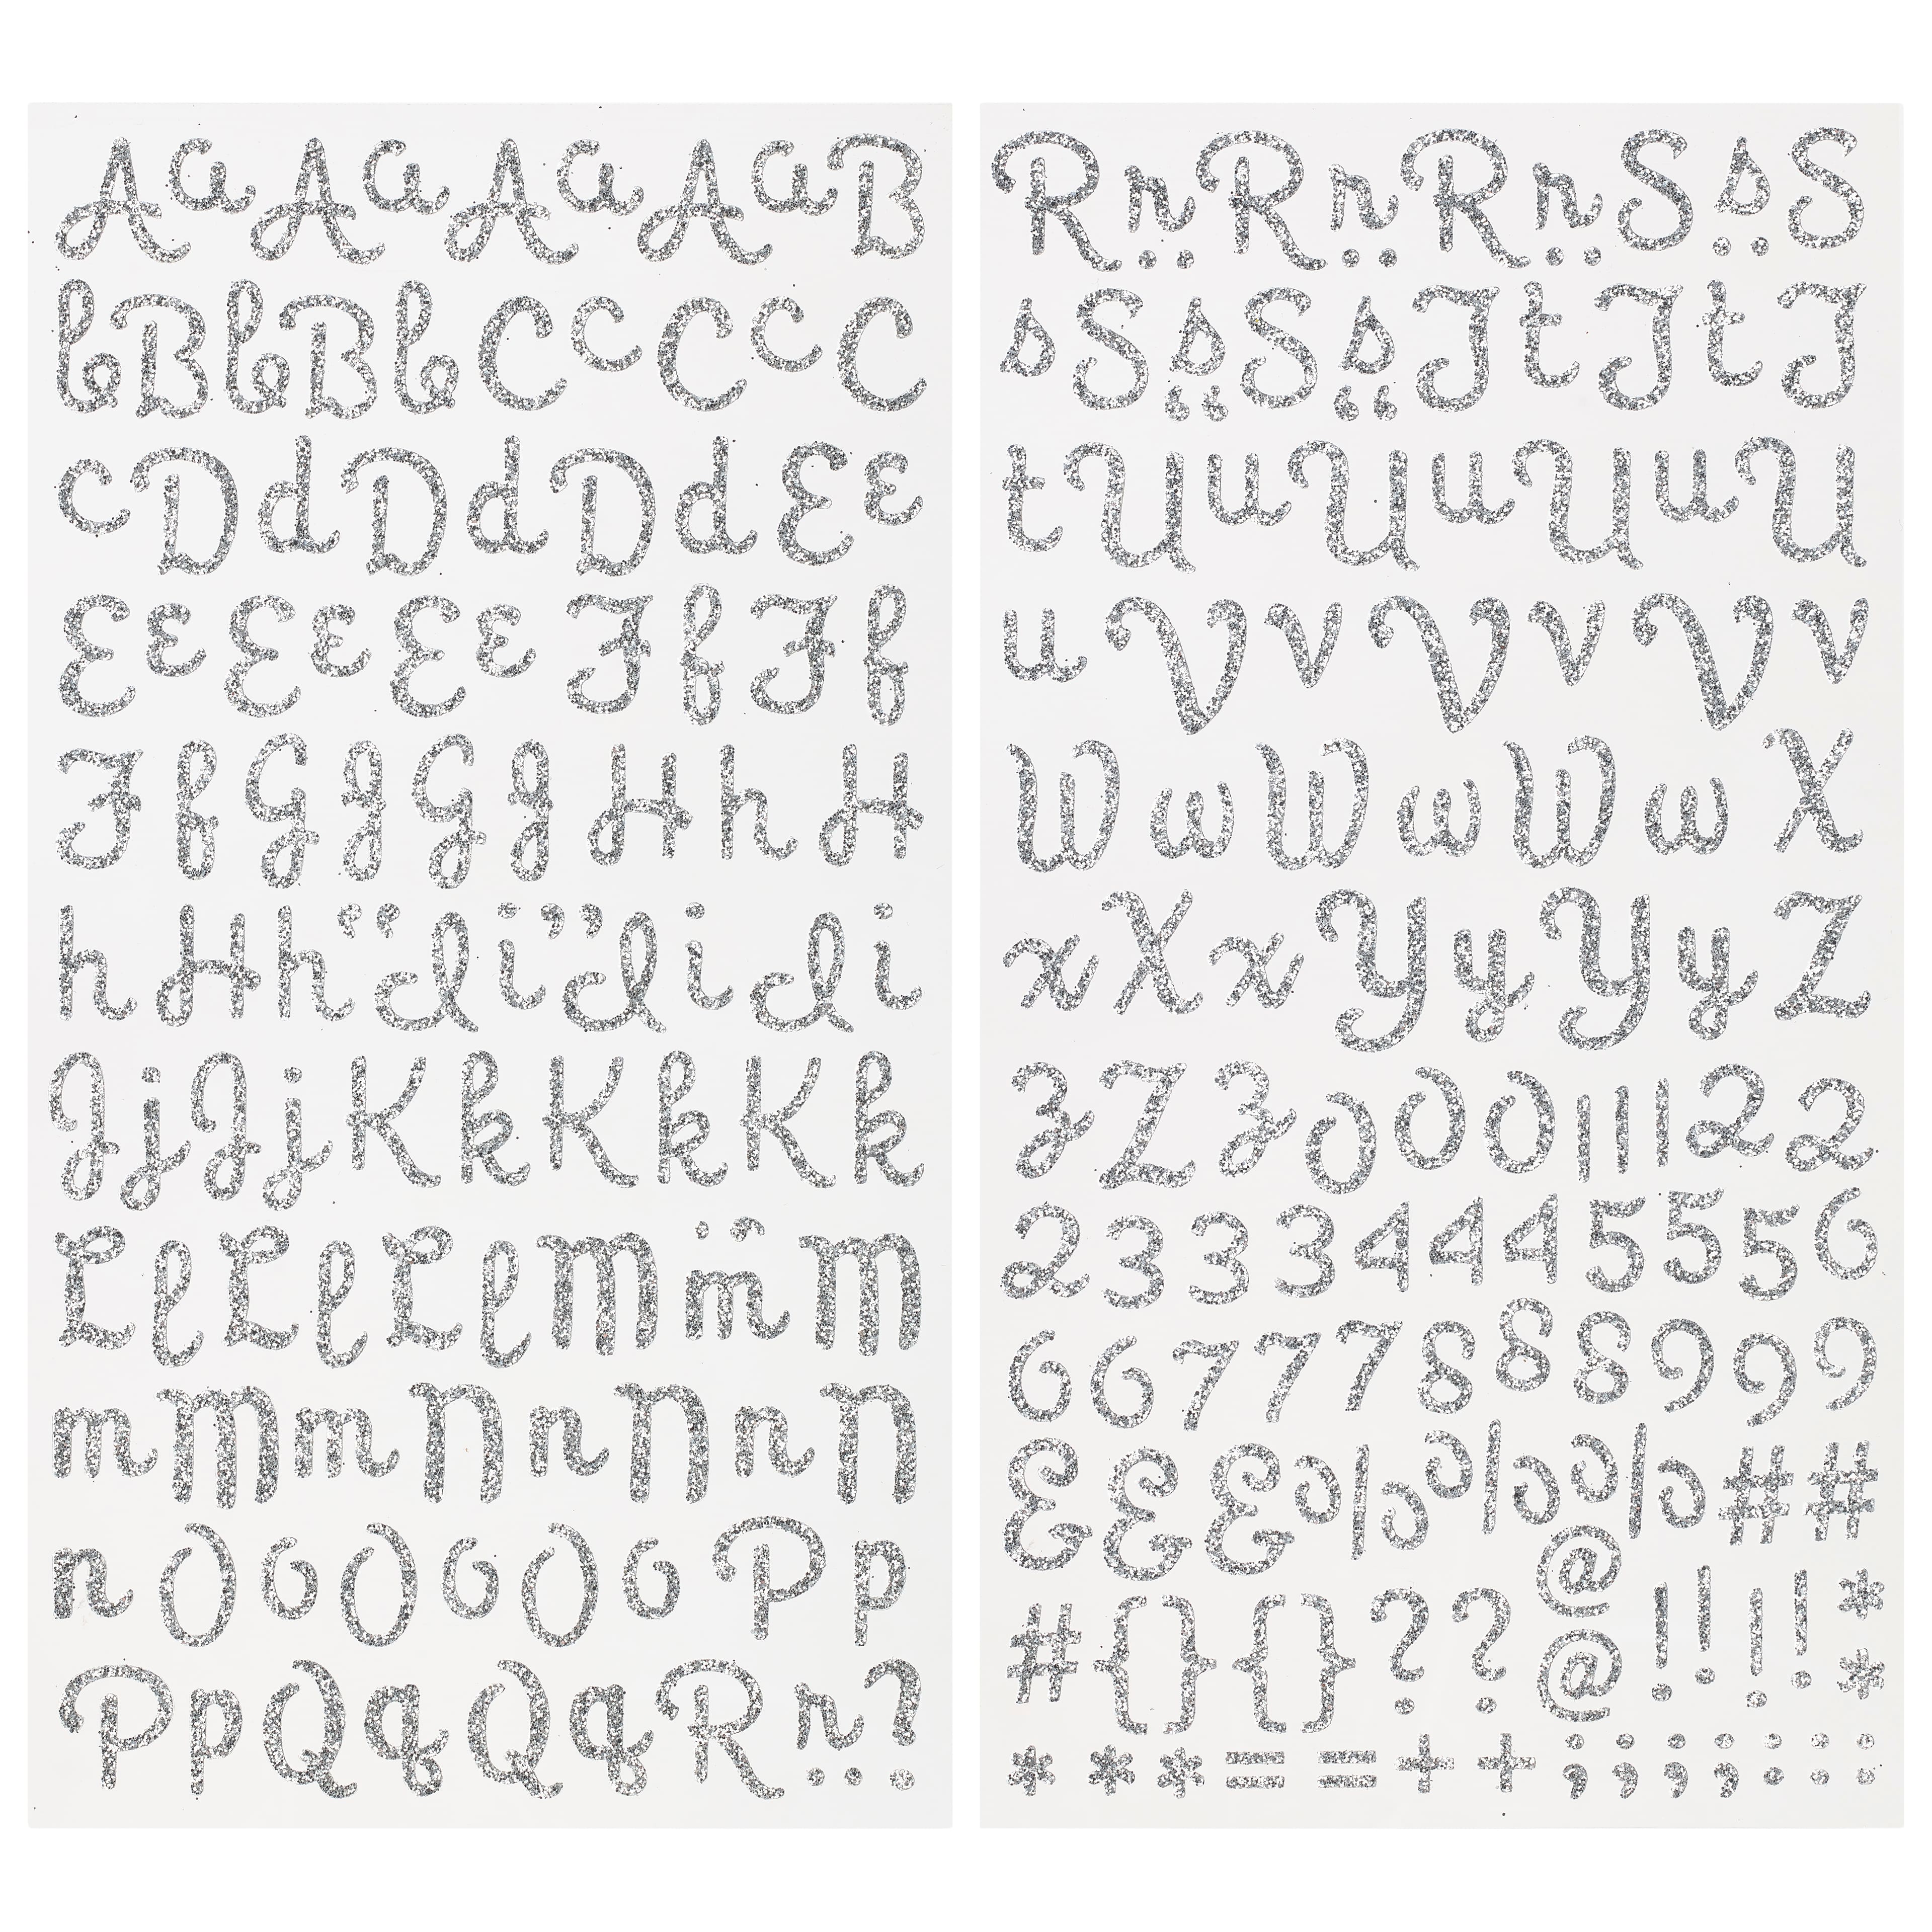 A a A a A a A a B
b B b B b C c C c C
c D d D d D d E e
E e E e E e F f F f
F f G g G g H h H
h H h “ I i ” I i I i
J j J j K k K k K k
L l L l L l M m M
m M m N n N n N
n O o O o O o P p
P p Q q Q q R r . . ?
R r . . R r . . R r . . S s . . S
s S s “ S s “ T t T t T
t U u U u U u U
u V v V v V v
W w W w W w X
x X x Y y Y y Z
z Z z 0 0 0 1 1 1 2 2
2 3 3 3 4 4 4 5 5 5 6
6 6 7 7 7 8 8 8 9 9 9
& & & % % % # #
# { } { } ? ? @ @ ! ! ! ! * *
* * * = = + + ; ; ; ; : : :